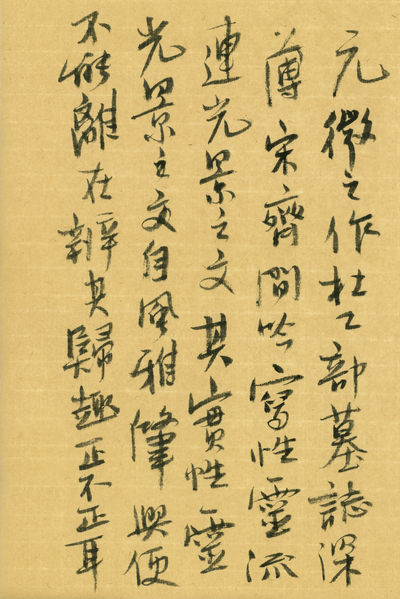 元微之作杜工部墓誌深
薄宋齊間吟寫性靈流
連光景之文其實性靈
光景之文自風雅肇興便
不能離在辨其歸趣正不正耳